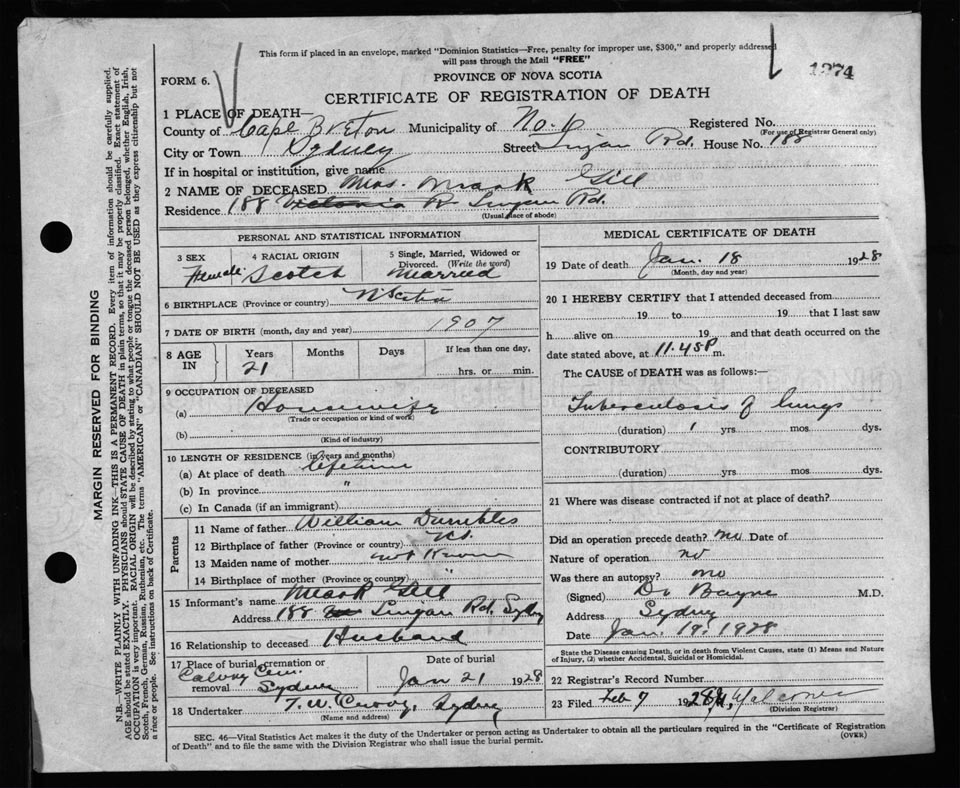 This form if placed in an envelope, marked "Dominion Statistics—Free, penalty for improper use, $300," and properly addressed
will pass through the Mail "FREE"
1274
FORM 6.
PROVINCE OF NOVA SCOTIA
CERTIFICATE OF REGISTRATION OF DEATH
1 PLACE OF DEATH—
County of Cape Breton Municipality of No. 6 Registered No.
(For use of Registrar General only)
City or Town Sydney Street Lingan Rd. House No. 188
If in hospital or institution, give name
2 NAME OF DECEASED Mrs. Mark Gill
Residence 188 Victoria R Lingan Rd.
(Usual place of abode)
PERSONAL AND STATISTICAL INFORMATION
3 SEX 4 RACIAL ORIGIN 5 Single, Married, Widowed or
Divorced. (Write the word)
Female Scotch Married
6 BIRTHPLACE (Province or country) N Scotia
7 DATE OF BIRTH (month, day and year) 1907
8 AGE IN Years Months Days If less than one day,
21 hrs. or min.
9 OCCUPATION OF DECEASED
(a) Housewife
(Trade or occupation or kind of work)
(b)
(Kind of industry)
10 LENGTH OF RESIDENCE (in years and months)
(a) At place of death Lifetime
(b) In province "
(c) In Canada (if an immigrant)
Parents
11 Name of father William Dumbles
12 Birthplace of father (Province or country) NS.
13 Maiden name of mother not known
14 Birthplace of mother (Province or country) "
15 Informant's name Mark Gill
Address 188 Lingan Rd. Sydney
16 Relationship to deceased Husband
17 Place of burial, cremation or removal Date of burial
Calvary Cem. Sydney Jan 21 1928
18 Undertaker T. W. Curry, Sydney
(Name and address)
MEDICAL CERTIFICATE OF DEATH
19 Date of death Jan. 18 1928
(Month, day and year)
20 I HEREBY CERTIFY that I attended deceased from
19 to 19 that I last saw
h alive on 19 and that death occurred on
date stated above, at 11.45 P m.
The CAUSE of DEATH was as follows:—
Tuberculosis of lungs
(duration) 1 yrs. mos. dys.
CONTRIBUTORY
(duration) yrs. mos. dys.
21 Where was disease contracted if not at place of death?
Did an operation precede death? no Date of
Nature of operation no
Was there an autopsy? no
(Signed) Dr Bayne M.D.
Address Sydney
Date Jan. 19. 1928
State the Disease causing Death, or in death from Violent Causes, state (1) Means and Nature
of Injury, (2) whether Accidental, Suicidal or Homicidal.
22 Registrar's Record Number
23 Filed Feb 7 1928
(Division Registrar)
SEC. 46—Vital Statistics Act makes it the duty of the Undertaker or person acting as Undertaker to obtain all the particulars required in the "Certificate of Registration
of Death" and to file the same with the Division Registrar who shall issue the burial permit.
(OVER)
MARGIN RESERVED FOR BINDING
N.B.—WRITE PLAINLY WITH UNFADING INK—THIS IS A PERMANENT RECORD. Every item of information should be carefully supplied.
AGE should be stated EXACTLY. PHYSICIANS should STATE CAUSE OF DEATH in plain terms, so that it may be properly classified. Exact statement of
OCCUPATION is very important. RACIAL ORIGIN will be described by stating to what people or tongue the deceased person belonged, whether English, Irish,
Scotch, French, German, Russian, Ruthenian, etc. The terms "AMERICAN" or "CANADIAN" SHOULD NOT BE USED as they express citizenship but not
a race or people. See instructions on back of Certificate.